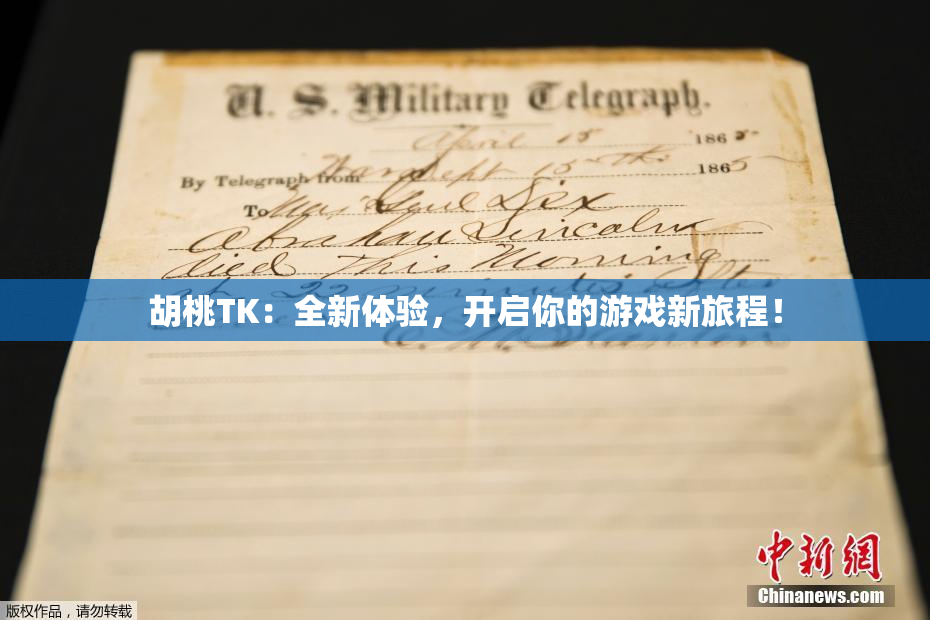 U. S. Military Telegraph.
April 15 1865
By Telegraph from War Dept 15th 1865
To Maj Genl Dix
Abraham Lincoln
died This Morning
at 22 minutes after
胡桃TK：全新体验，开启你的游戏新旅程！
E. M. Stanton
中新网
Chinanews.com
版权作品，请勿转载